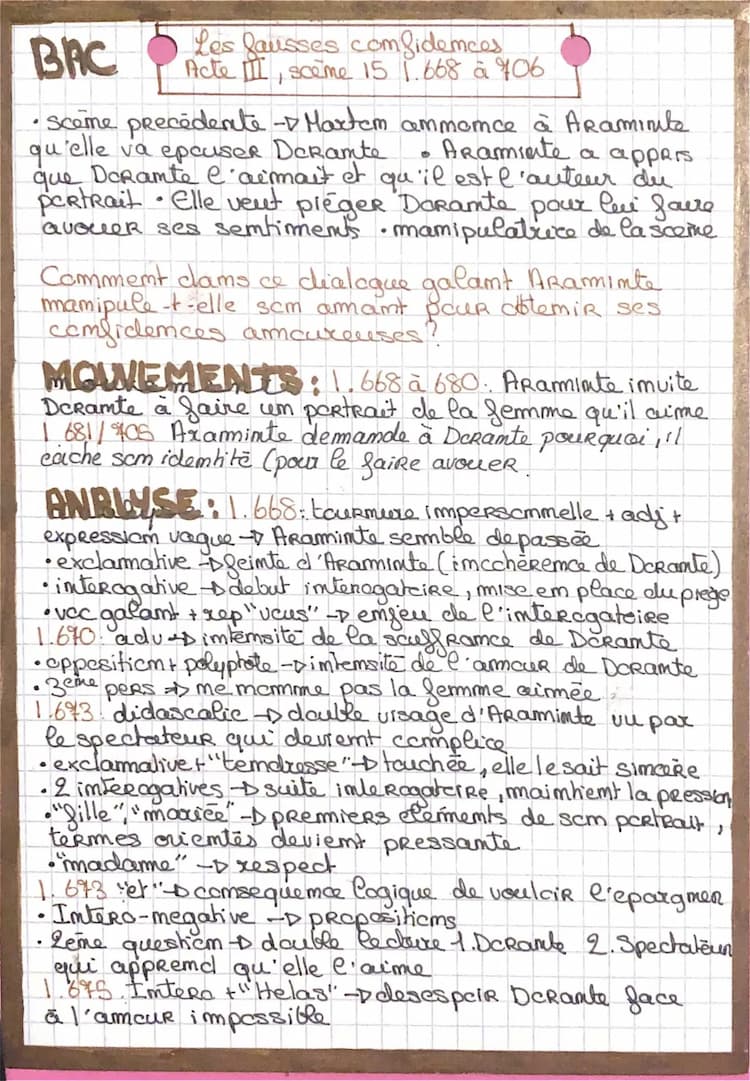 BAC
Les fausses confidences
Acte III, scène 15 l.668 à 706
• scène precédente → Marton annonce à Araminte
qu'elle va epouser Dorante • Araminte a appris
que Dorante l'aimait et qu'il est l'auteur du
portrait • Elle veut piéger Dorante pour lui faire
avouer ses sentiments • manipulatrice de la scène
Comment dans ce dialogue galant Araminte
manipule-t-elle son amant pour obtenir ses
confidences amoureuses?
MOUVEMENTS : l.668 à 680: Araminte invite
Dorante à faire un portrait de la femme qu'il aime
l 681/705 Araminte demande à Dorante pourquoi, il
cache son identité (pour le faire avouer
ANALYSE : l.668: tournure impersonnelle + adj +
expression vague → Araminte semble depassée
• exclamative → feinte d'Araminte (incohérence de Dorante)
• interogative → debut interogatoire, mise en place du piege
• voc galant + rep "vous" → enjeu de l'interogatoire
l.670: adv → intensité de la souffrance de Dorante
• opposition + polyptote → intensité de l'amour de Dorante
• 3ème pers → ne nomme pas la femme aimée
l.673: didascalie → double visage d'Araminte vu par
le spectateur qui devient complice
• exclamative + "tendresse" → touchée, elle le sait sincère
• 2 interogatives → suite interogatoire, maintient la pression
• "fille", "mariée" → premiers elements de son portrait,
termes orientés devient pressante
• "madame" → respect
l. 673 "et" → consequence logique de vouloir l'epargner
• Intero-negative → propositions
• 2ème question → double lecture 1. Dorante 2. Spectateur
qui apprend qu'elle l'aime
l.675 Intero + "Helas" → desespoir Dorante face
à l'amour impossible